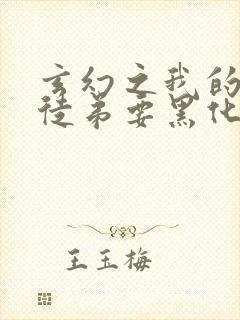 玄幻之我的
徒弟要黑化
王玉梅